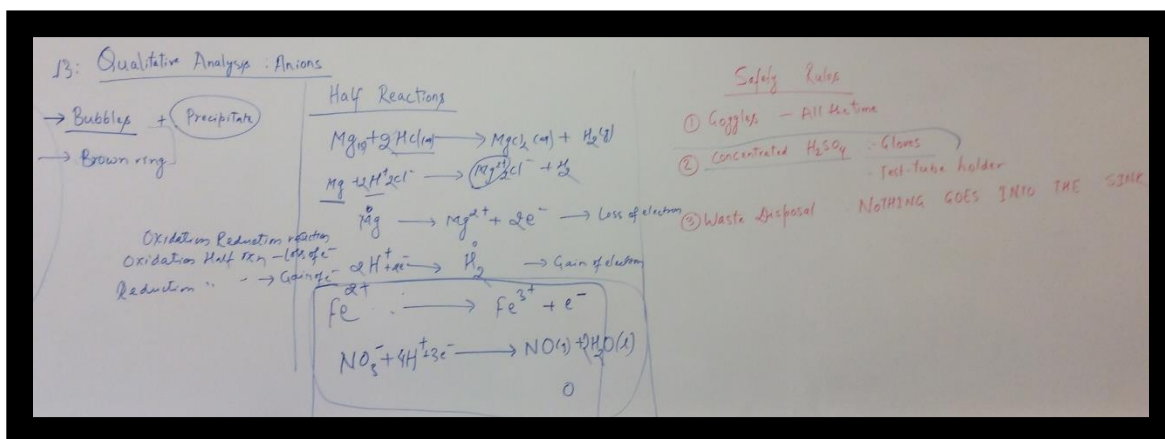 13: Qualitative Analysis : Anions
→ Bubbles + Precipitate
→ Brown ring
Oxidation Reduction reaction
Oxidation Half rxn - Loss of e⁻
Reduction " " → Gain of e⁻
Half Reactions
Mg(s) + 2HCl(aq) → MgCl₂(aq) + H₂(g)
Mg + 2H⁺ 2Cl⁻ → Mg²⁺ 2Cl⁻ + H₂
Mg⁰ → Mg²⁺ + 2e⁻ → Loss of electron
2H⁺ + 2e⁻ → H₂⁰ → Gain of electron
Fe²⁺ → Fe³⁺ + e⁻
NO₃⁻ + 4H⁺ + 3e⁻ → NO(g) + 2H₂O(l)
0
Safety Rules
① Goggles - All the time
② Concentrated H₂SO₄ : Gloves
: Test-Tube holder
③ Waste Disposal NOTHING GOES INTO THE SINK